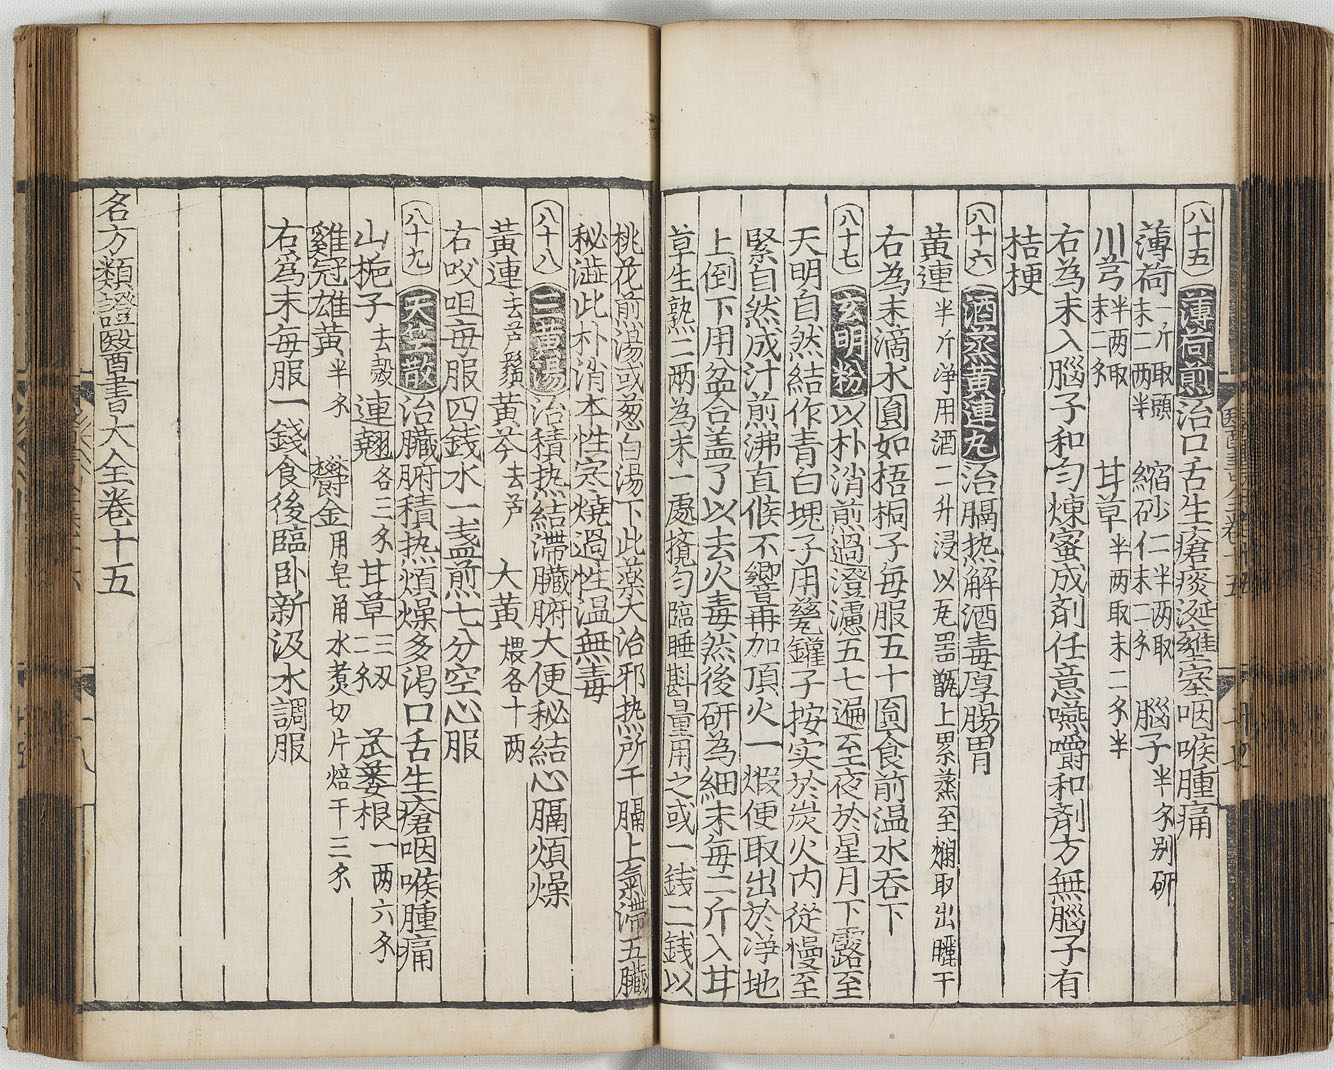 八十五 薄荷煎 治口舌生瘡痰涎壅塞咽喉腫痛
薄荷 一斤取頭末二两半 縮砂仁 二半两取末一分 腦子 半分別研
川芎 半两取末一分 甘草 半两取末二分半
右為末入腦子和勻煉蜜成剤任意嚥嚼和剤方無腦子有
桔梗
八十六 酒蒸黄連丸 治膈热解酒毒厚腸胃
黄連 半斤净用酒二升浸以瓦器甑上累蒸至爛取出曬干
右為末滴水圓如梧桐子每服五十圎食前温水吞下
八十七 玄明粉 以朴消煎過澄濾五七遍至夜於星月下露至
天明自然結作青白塊子用甆鑵子按实於炭火内從慢至
緊自然成汁煎沸直候不響再加頂火一煅便取出於淨地
上倒下用盆合盖了以去火毒然後研為細末每二斤入甘
草生熟二两為末一處攪勻臨睡斟量用之或一錢二錢以
桃花煎湯或葱白湯下此藥大治邪热所干膈上氣滯五臓
秘澁此朴消本性寒燒過性温無毒
八十八 三黄湯 治積热結滯臓腑大便秘結心膈煩燥
黄連 去芦鬚 黄芩 去芦 大黄 煨各十两
右㕮咀每服四錢水一盞煎七分空心服
八十九 天竺散 治臓腑積热煩燥多渴口舌生瘡咽喉腫痛
山梔子 去殼 連翹 各三分 甘草 三双二分 苽蔞根 一两六分
雞冠雄黄 半分 欝金 用皂角水煮切片焙干三分
右為末每服一錢食後臨卧新汲水調服
名方類證醫書大全卷十五